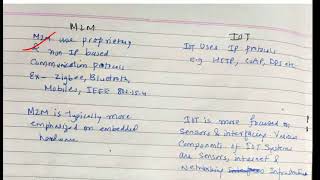 M2M
IOT
M2M use proprietary
& non IP based
Communication protocols
Ex- Zigbee, Bluetooth,
Mobiles, IEEE 802.15.4
IOT uses IP protocols
e.g. HTTP, CoAP, DDS etc
M2M is typically more
emphasized on embedded
hardware
IOT is more focused on
Sensors & interfacing Various
Components of IOT Systems
are Sensors, internet &
Networking Infrastructure